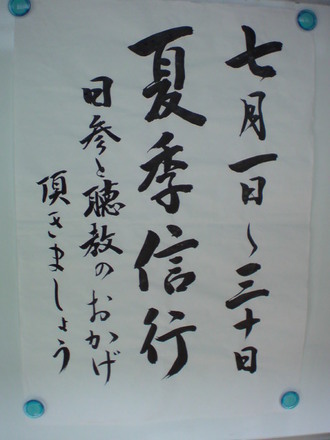 七月一日〜三十日
夏季信行
日参と聴教のおかげ
頂きましょう